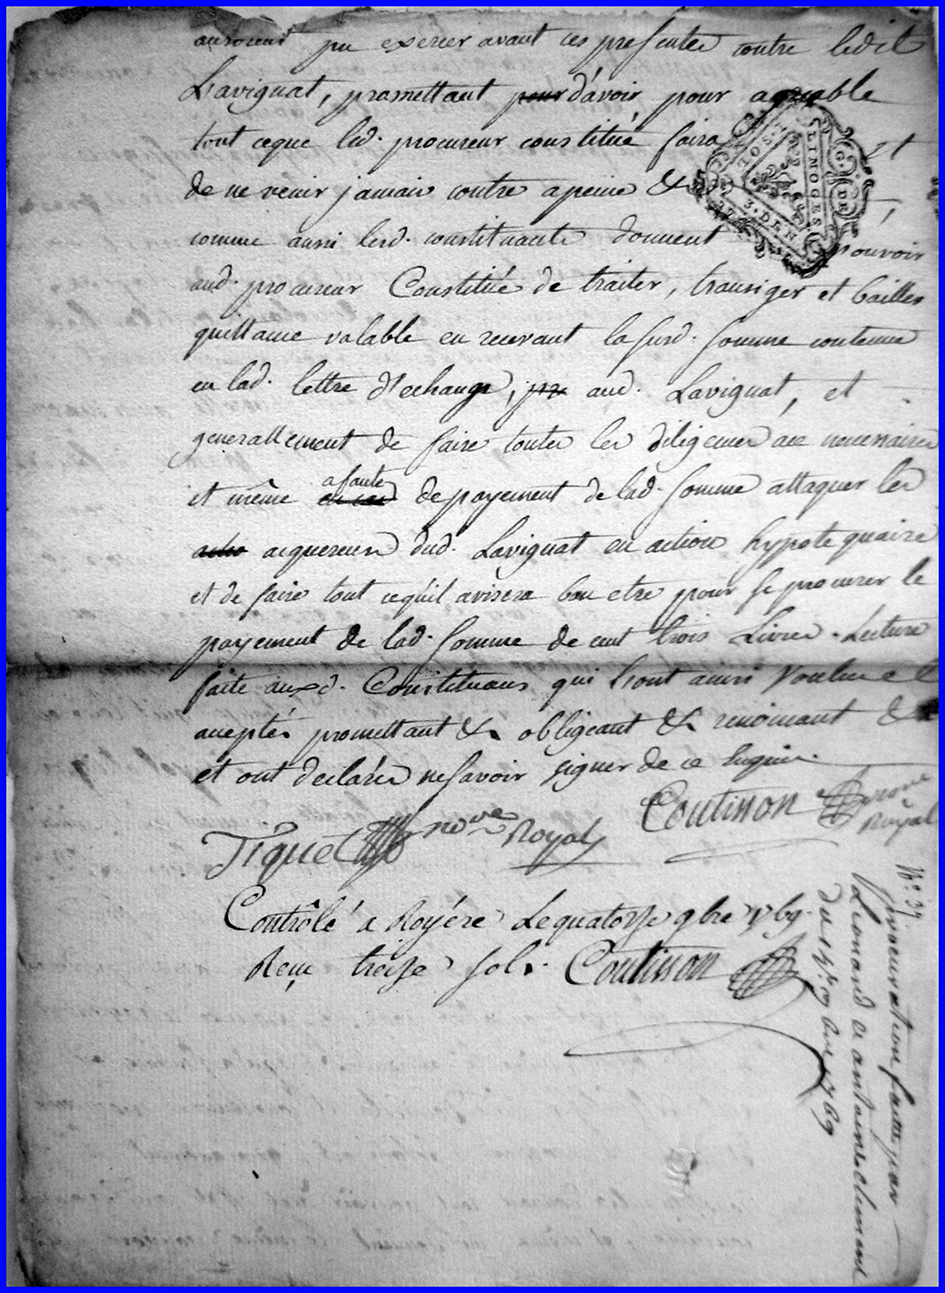 auroient pu exercer avant ces presentes contre ledit
Lavignat, promettant pour d'avoir pour agreable
tout ceque led. procureur constitué faira et
de ne venir jamais contre a peine &
comme aussi lesd. constituants donnent pouvoir
aud. procureur Constitué de traiter, transiger et bailler
quittance valable en recevant la susd. somme contenue
en lad. lettre d'echange, aud. Lavignat, et
generallement de faire toutes les diligences necessaires
et même a faute de payement de lad. somme attaquer les
acquereurs dud. Lavignat en action hypotequaire
et de faire tout cequil avisera bon etre pour se procurer le
payement de lad. somme de cent trois Livres. Lecture
faite auxd. Constituans qui l'ont ainsi voulu et
acceptés promettant &c obligeant &c renonçant &c
et ont declarés ne savoir signer de ce Requis.
Coutisson nore Royal
Tiquet nore Royal
Contrôlé a Royére Le quatorze 9bre 1769.
Reçu treize sols. Coutisson
No. 39.
procuration faitte par
Leonard et antoine clement
du 14e. 9bre 1769
G. DE
LIMOGES
SOL
3. DEN